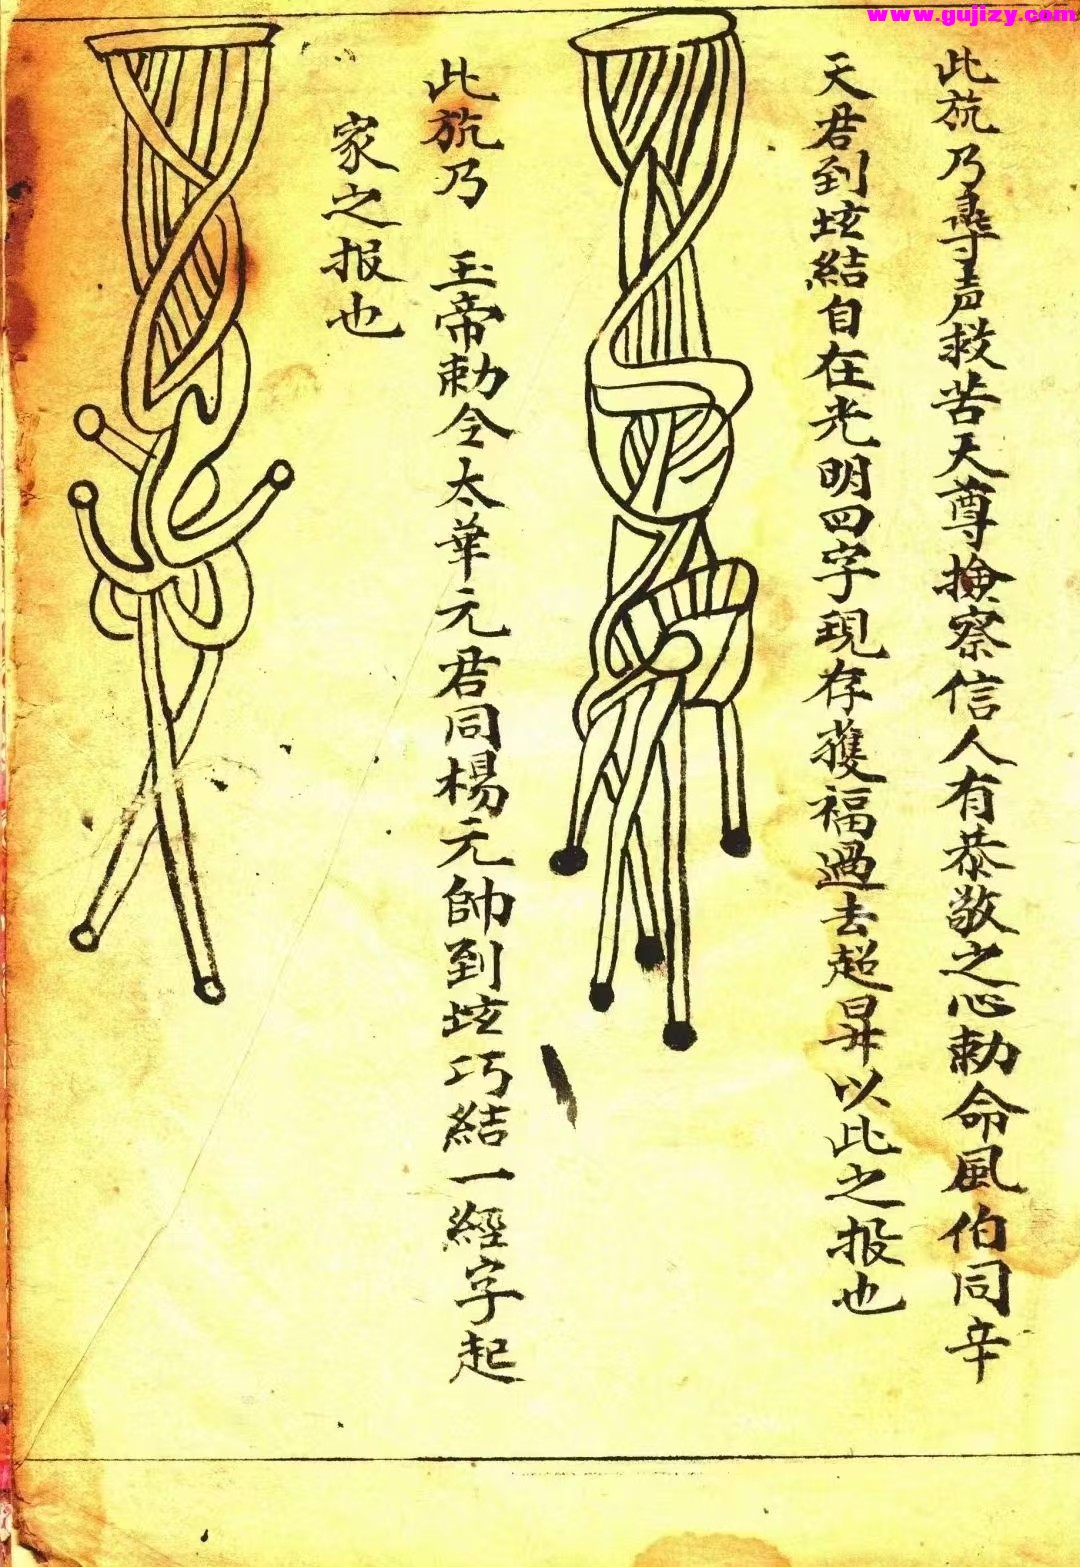 www.gujizy.com
此旒乃尋声救苦天尊撿察信人有恭敬之心勅命風伯同辛
天君到坛結自在光明四字現存獲福過去超昇以此之报也
此旒乃 玉帝勅令太華元君同楊元帥到坛巧結一經字起
家之报也